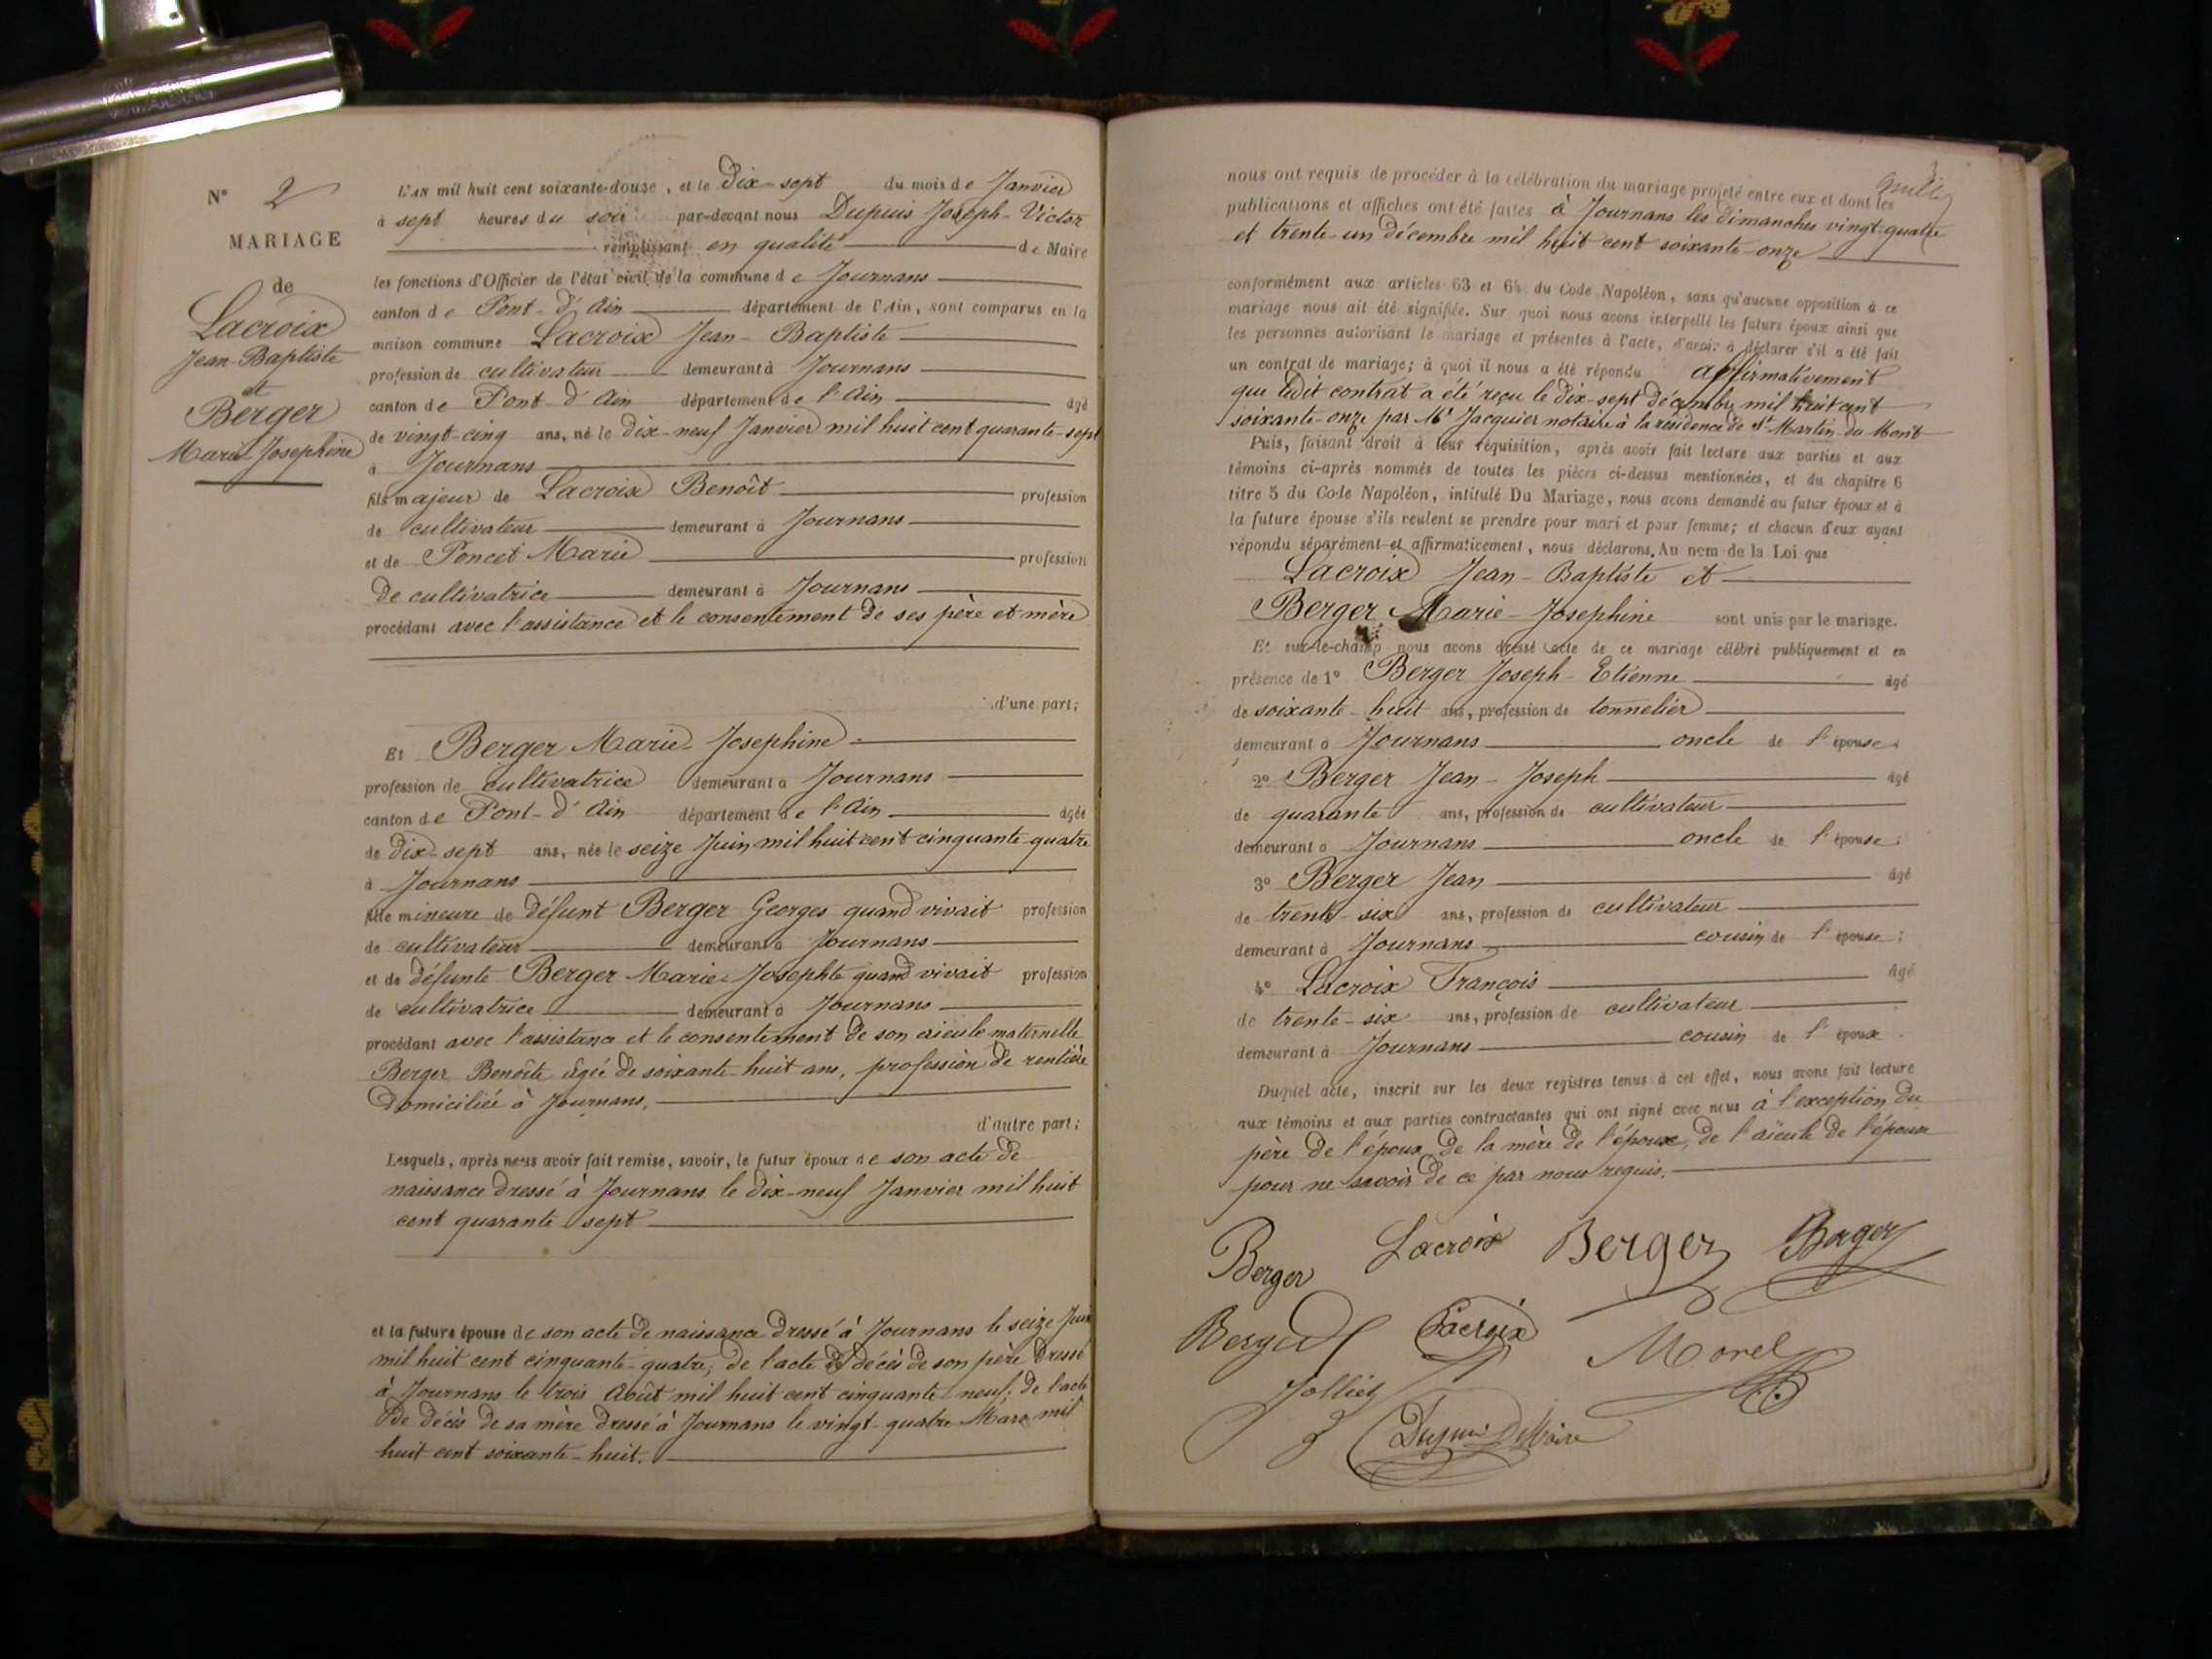 N° 2
MARIAGE
de
Lacroix
Jean-Baptiste
et
Berger
Marie-Josephine
L'AN mil huit cent soixante-douze, et le Dix-sept du mois de Janvier
à sept heures du soir par-devant nous Dupuis Joseph-Victor
remplissant en qualité de Maire
les fonctions d'Officier de l'état civil de la commune de Journans
canton de Pont-d'Ain département de l'Ain, sont comparus en la
maison commune Lacroix Jean-Baptiste
profession de cultivateur demeurant à Journans
canton de Pont-d'Ain département de l'Ain âgé
de vingt-cinq ans, né le Dix-neuf Janvier mil huit cent quarante-sept
à Journans
fils majeur de Lacroix Benoît profession
de cultivateur demeurant à Journans
et de Poncet Marie profession
de cultivatrice demeurant à Journans
procédant avec l'assistance et le consentement de ses père et mère
d'une part;
Et Berger Marie-Josephine
profession de cultivatrice demeurant à Journans
canton de Pont-d'Ain département de l'Ain âgée
de Dix-sept ans, née le seize Juin mil huit cent cinquante-quatre
à Journans
fille mineure de défunt Berger Georges quand vivait profession
de cultivateur demeurant à Journans
et de défunte Berger Marie-Josephte quand vivait profession
de cultivatrice demeurant à Journans
procédant avec l'assistance et le consentement de son aïeule maternelle
Berger Benoîte âgée de soixante-huit ans, profession de rentière
domiciliée à Journans.
d'autre part;
Lesquels, après nous avoir fait remise, savoir, le futur époux de son acte de
naissance dressé à Journans le dix-neuf Janvier mil huit
cent quarante sept
et la future épouse de son acte de naissance dressé à Journans le seize Juin
mil huit cent cinquante-quatre; de l'acte de décès de son père dressé
à Journans le trois Août mil huit cent cinquante-neuf; de l'acte
de décès de sa mère dressé à Journans le vingt-quatre Mars mil
huit cent soixante-huit.
nous ont requis de procéder à la célébration du mariage projeté entre eux et dont les
publications et affiches ont été faites à Journans les dimanches vingt-quatre
et trente-un décembre mil huit cent soixante-onze
conformément aux articles 63 et 64 du Code Napoléon, sans qu'aucune opposition à ce
mariage nous ait été signifiée. Sur quoi nous avons interpellé les futurs époux ainsi que
les personnes autorisant le mariage et présentes à l'acte, d'avoir à déclarer s'il a été fait
un contrat de mariage; à quoi il nous a été répondu affirmativement
que ledit contrat a été reçu le dix-sept décembre mil huit cent
soixante-onze par Me Jacquier notaire à la résidence de St Martin-du-Mont
Puis, faisant droit à leur réquisition, après avoir fait lecture aux parties et aux
témoins ci-après nommés de toutes les pièces ci-dessus mentionnées, et du chapitre 6
titre 5 du Code Napoléon, intitulé Du Mariage, nous avons demandé au futur époux et à
la future épouse s'ils veulent se prendre pour mari et pour femme; et chacun d'eux ayant
répondu séparément et affirmativement, nous déclarons, Au nom de la Loi que
Lacroix Jean-Baptiste et
Berger Marie-Josephine sont unis par le mariage.
Et sur-le-champ nous avons dressé acte de ce mariage célébré publiquement et en
présence de 1° Berger Joseph-Etienne âgé
de soixante-huit ans, profession de tonnelier
demeurant à Journans oncle de l'épouse;
2° Berger Jean-Joseph âgé
de quarante ans, profession de cultivateur
demeurant à Journans oncle de l'épouse;
3° Berger Jean âgé
de trente-six ans, profession de cultivateur
demeurant à Journans cousin de l'épouse;
4° Lacroix François âgé
de trente-six ans, profession de cultivateur
demeurant à Journans cousin de l'époux
Duquel acte, inscrit sur les deux registres tenus à cet effet, nous avons fait lecture
aux témoins et aux parties contractantes qui ont signé avec nous à l'exception du
père de l'époux, de la mère de l'époux, de l'aïeule de l'épouse
pour ne savoir de ce par nous requis.
Berger Lacroix Berger Berger
Berger Lacroix Morel
Jolliet
Dupuis Maire